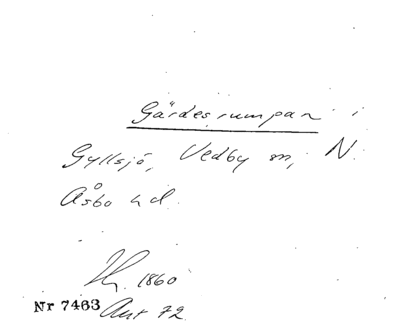 Gärdesrumpan i
Gyllsjö, Vedby sn, N.
Åsbo hd.
1860
Nr 7463 Avt 72